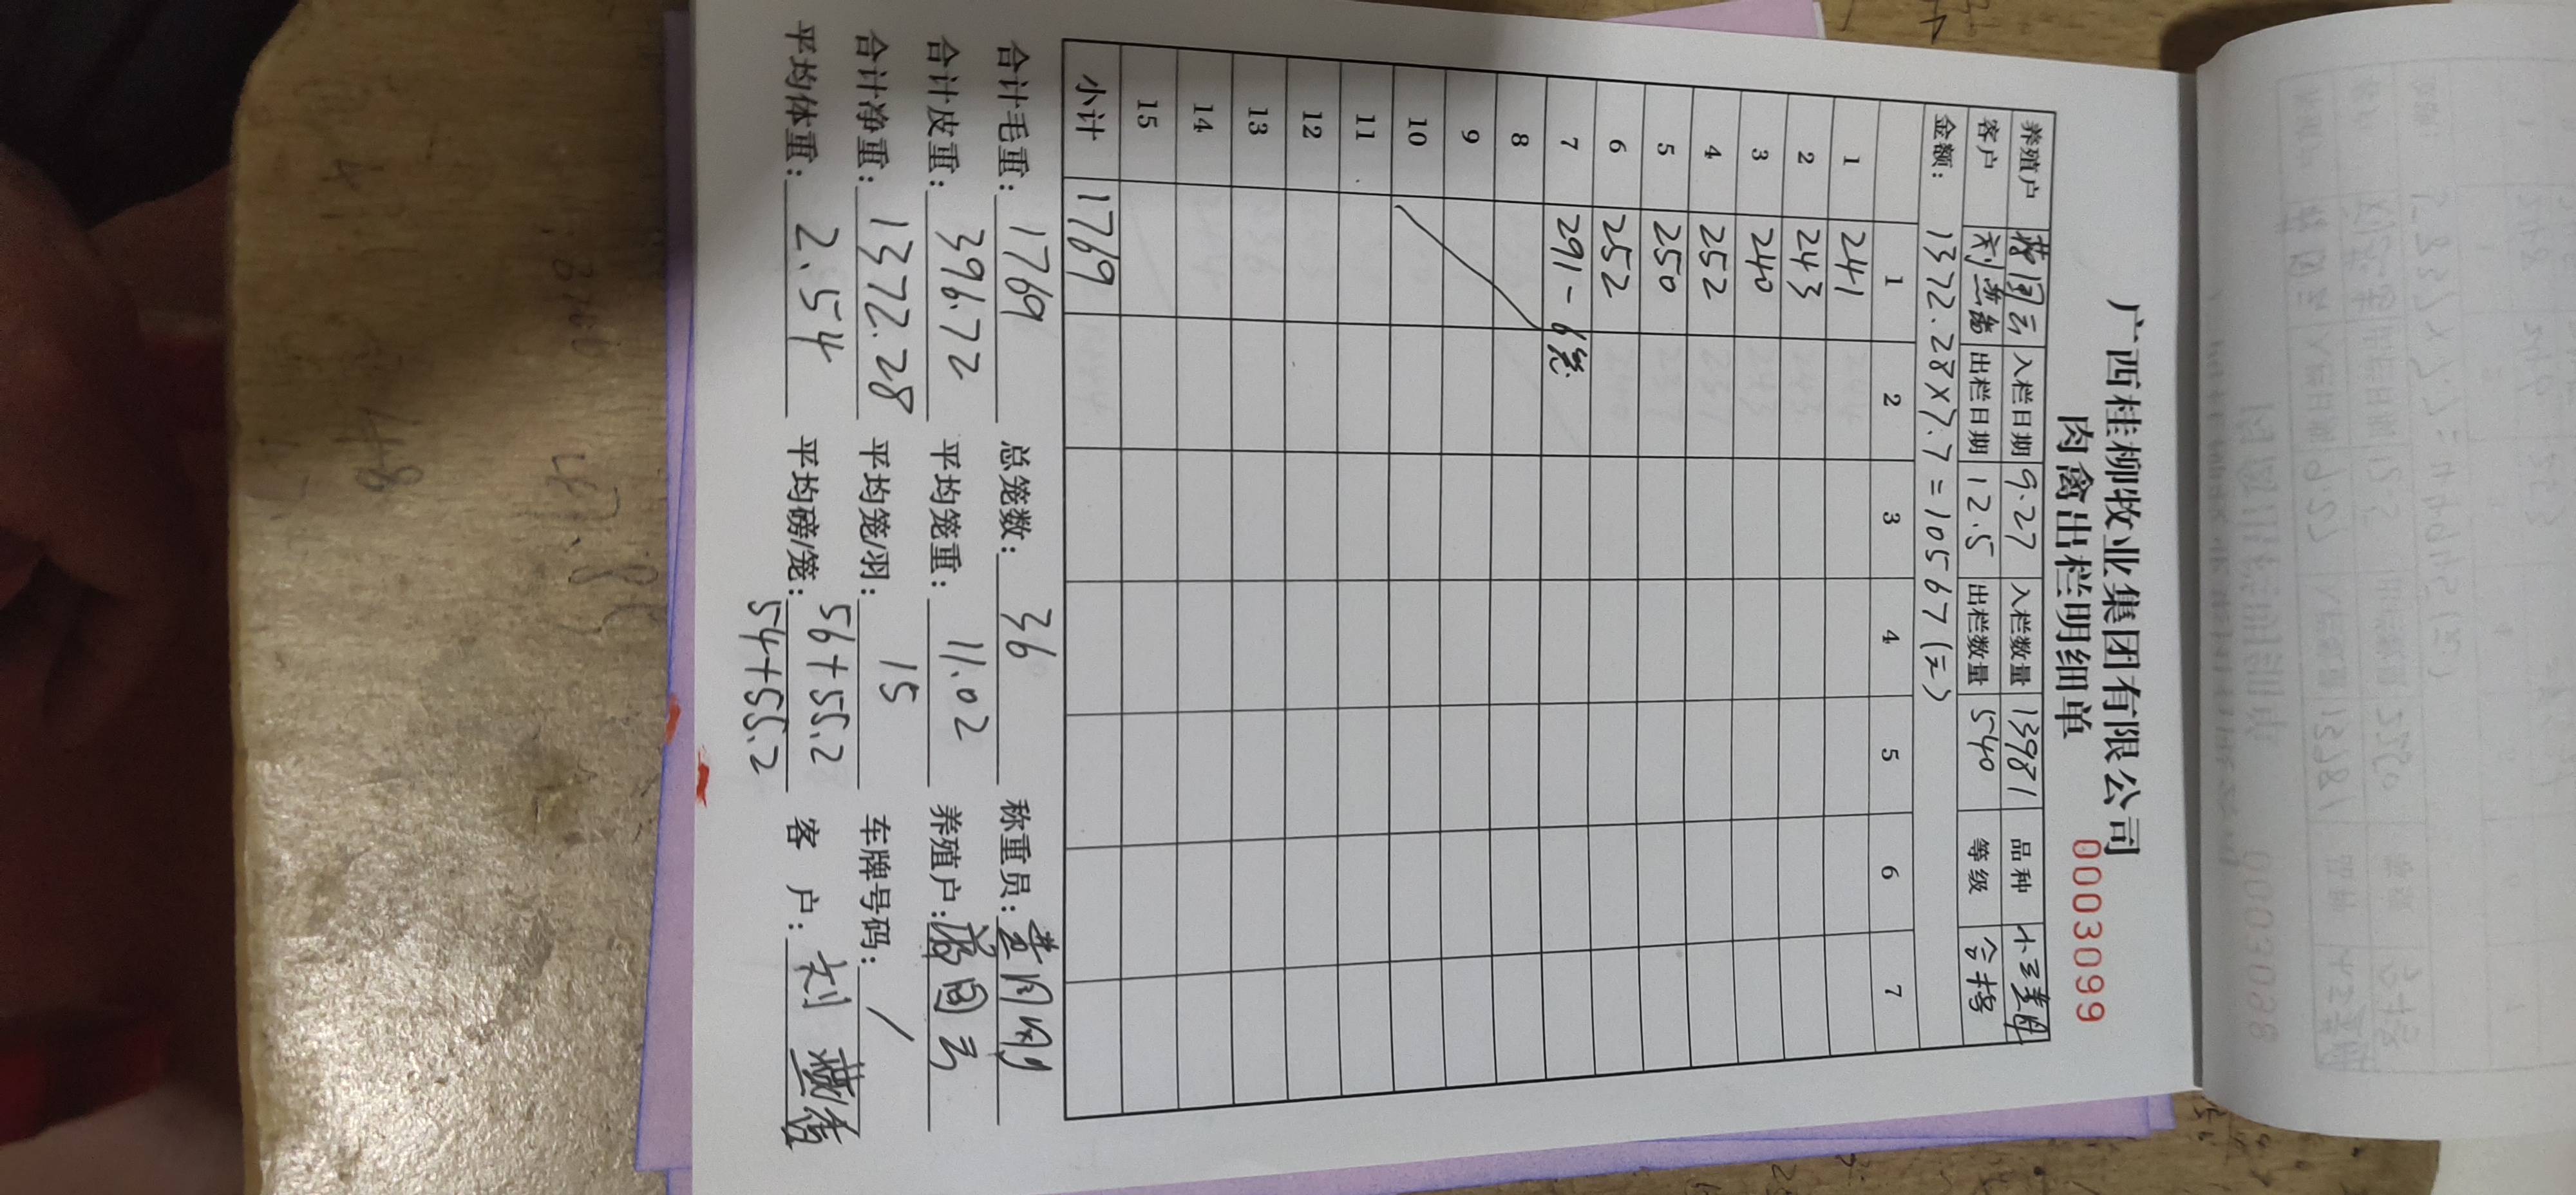 广西桂柳牧业集团有限公司
肉禽出栏明细单 00030099
养殖户 国云 入栏日期 9.27 入栏数量 13981 品种 小三黄
客户 刘燕 出栏日期 12.5 出栏数量 540 等级 合格
金额: 1372.28×7.7=10567(元)
1 2 3 4 5 6 7
1 241
2 243
3 240
4 252
5 250
6 252
7 291-6笼
8
9
10
11
12
13
14
15
小计 1769
合计毛重: 1769 总笼数: 36 称重员:
合计皮重: 396.72 平均笼重: 11.02 养殖户: 国云
合计净重: 1372.28 平均笼/羽: 15 车牌号码: /
平均体重: 2.54 平均磅/笼: 56+55.2 客 户: 刘燕
54+55.2